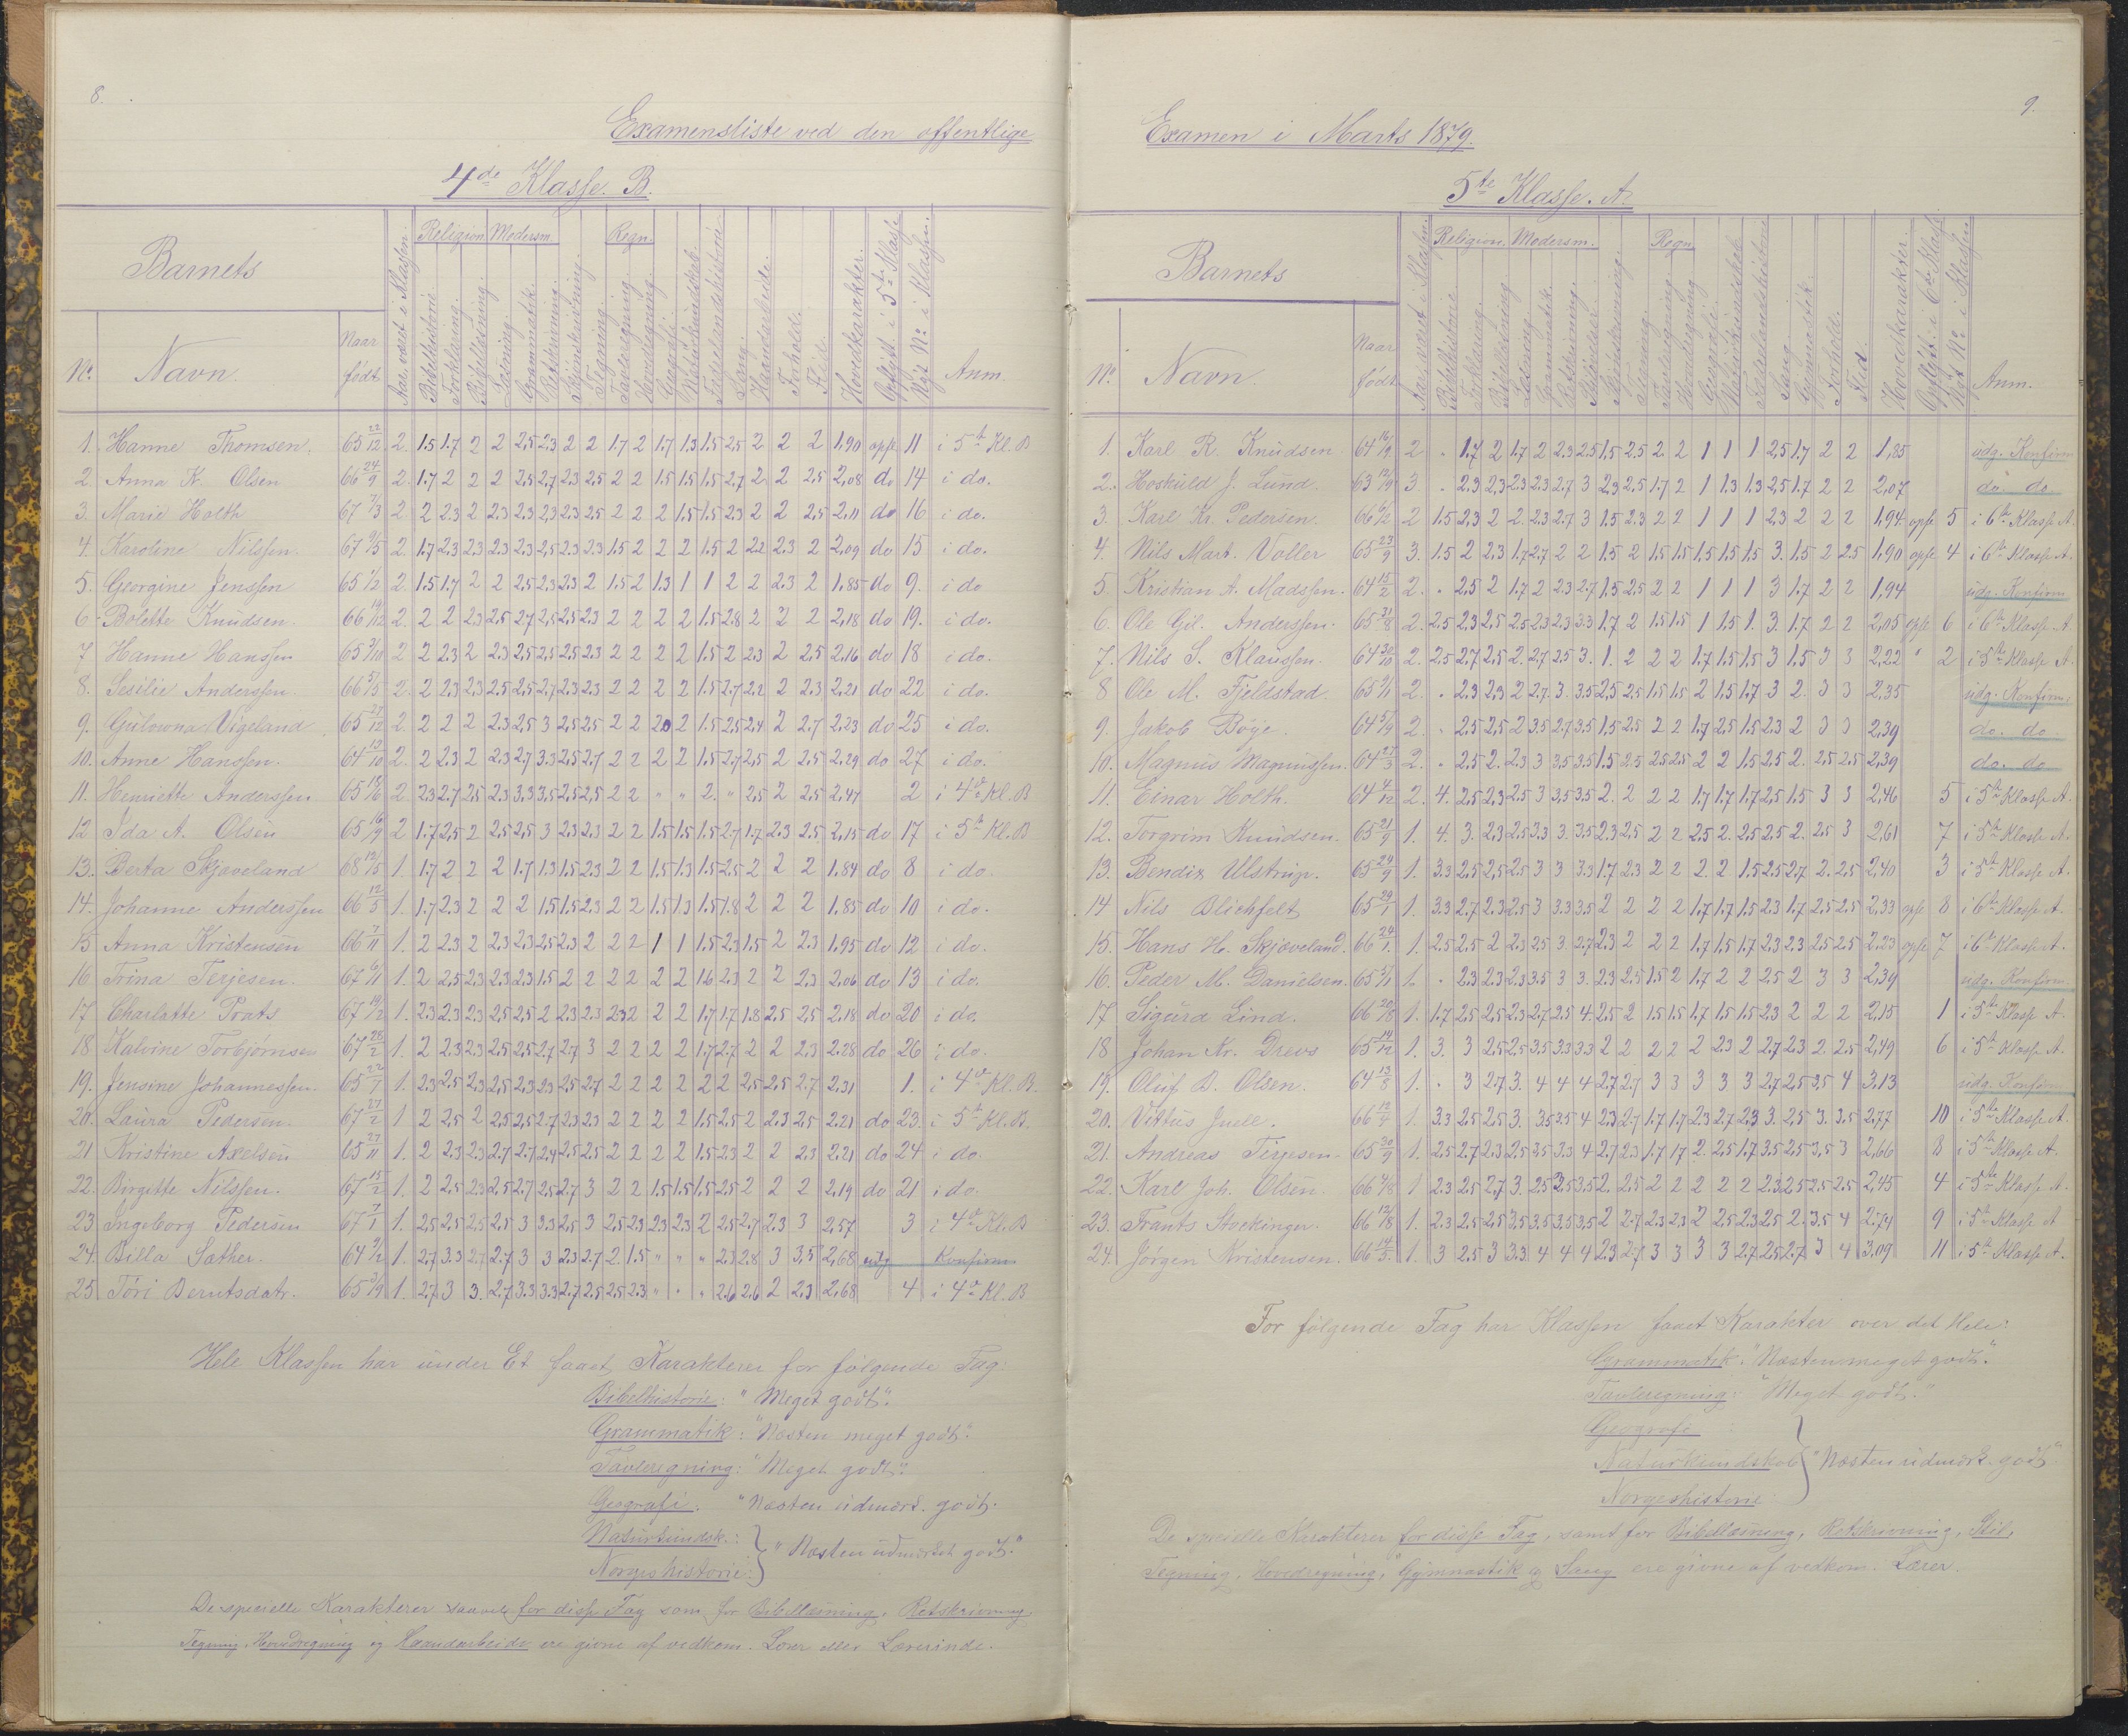 8.
Examensliste ved den offentlige
4de Klasse. B.
Barnets
Religion
Modersm.
Regn.
No.
Navn.
Naar født
Aar været i Klassen.
Bibelhistorie.
Forklaring.
Bibellæsning.
Læsning.
Grammatik.
Retskrivning.
Skjønskrivning.
Tegning.
Tavleregning.
Hovedregning.
Geografi.
Fædrelandshistorie.
Sang.
Haandarbeide.
Forhold.
Flid.
Hovedkarakter.
Opfl. i 5te Klasse
Nyt No. i Klassen.
Anm.
1. Hanne Thomsen. 65 22/12 2. 1.5 1.7 2 2 2.5 2.3 2 2 1.7 2 1.7 1.3 1.5 2.5 2 2 2 1,90 opfl. 11 i 5te Kl. B
2. Anna K. Olsen 66 24/9 2. 1.7 2 2 2 2.5 2.7 2.3 2.5 2 2 1.5 1.5 1.5 2.7 2 2 2.5 2,08 do 14 i do.
3. Marie Holth 67 7/3 2 2 2.3 2 2.3 2.3 2.3 2.3 2.5 2 2 2 1.5 1.5 2.3 2 2 2.5 2,11 do 16 i do.
4. Karoline Nilssen. 67 9/5 2 1.7 2.3 2.3 2.3 2.3 2.5 2.3 2.3 1.5 2 2 2 1.5 2 2.2 2.3 2 2,09 do 15 i do.
5. Georgine Jenssen 65 1/2 2 1.5 1.7 2 2 2.5 2.3 2.3 2 1.5 2 1.3 1 1 2 2 2.3 2 1,85 do 9. i do
6. Bolette Knudsen. 66 19/12 2 2 2 2.3 2.5 2.7 2.5 2.5 2.3 2 2 2 2 1.5 2.8 2 2 2 2,18 do 19. i do.
7 Hanne Hanssen 65 3/10 2 2 2.3 2 2.3 2.5 2.5 2.5 2.3 2 2 2 2 1.5 2 2.3 2 2.5 2,16 do 18 i do.
8. Sesilie Anderssen. 66 5/5 2. 2 2.3 2.3 2.5 2.5 2.7 2.3 2.3 2 2 2 2 1.5 2.7 2.2 2 2.3 2,21 do 22 i do.
9. Gulowna Vigeland 65 27/12 2 2 2 2 2.3 2.5 3 2.5 2.5 2 2 2.0 2 1.5 2.5 2.4 2 2.7 2,23 do 25 i do.
10. Anne Hanssen. 64 13/10 2. 2 2.3 2 2.3 2.7 3.3 2.5 2.7 2 2 2 2 1.5 2.7 2.5 2 2.5 2,29 do 27 i do.
11. Henriette Anderssen 65 18/6 2 2.3 2.7 2.5 2.3 3.3 3.5 2.5 2.5 2 2 " " 2. " 2.5 2 2.5 2,47 2 i 4de Kl. B
12 Ida A. Olsen 65 16/9 2 1.7 2.5 2 2.5 2.5 3 2.3 2.3 2 2 1.5 1.5 1.5 2.7 1.7 2.3 2.5 2,15 do 17 i 5te Kl. B
13. Berta Skjæveland 68 12/5 1. 1.7 2 2 2 1.7 1.3 1.5 2.3 2 2 1.5 1.3 1.5 2.5 2 2 2 1,84 do 8 i do.
14. Johanne Anderssen 66 12/5 1. 1.7 2.3 2 2 2 1.5 1.5 2.3 2 2 1.5 1.3 1.5 1.8 2 2 2 1,85 do 10 i do.
15 Anna Kristensen 66 7/11 1. 2 2.3 2 2.3 2.3 2.5 2.3 2 2 2 1 1 1.5 2.3 1.5 2 2.3 1,95 do 12 i do.
16 Trina Terjesen. 67 6/11 1. 2 2.5 2.3 2.3 2.3 1.5 2 2 2 2 2 2 1.6 2.3 2 2 2.3 2,06 do 13 i do.
17. Charlotte Prats 67 19/2 1. 2.3 2.3 2.3 2.5 2.5 2 2.3 2.3 2.3 2 2 2 1.7 1.7 1.8 2.5 2.5 2,18 do 20 i do.
18 Kalvine Torbjørnsen 67 28/2 1. 2 2.3 2.3 2.5 2.5 2.7 2.7 3 2 2 2 2 1.7 2.7 2 2 2.3 2,28 do 26 i do.
19. Jensine Johannessen. 65 22/7 1. 2.3 2.5 2.3 2.5 2.3 2.3 2.5 2.7 2 2 2 2 2 2 2.5 2.5 2.7 2,31 1. i 4de Kl. B.
20. Laura Pedersen. 67 27/2 1 2 2.5 2 2.5 2.5 2.7 2.3 2.3 2 2 2 2 1.5 2.5 2 2.3 2.5 2,21 do 23. i 5te Kl. B.
21 Kristine Axelsen 65 27/11 1. 2 2.3 2.3 2.7 2.7 2.4 2.5 2.5 2 2 2 2 1.5 2.3 2 2 2.3 2,21 do 24 i do.
22. Birgitte Nilssen. 67 15/2 1. 2 2.5 2.3 2.5 2.7 2.5 2.7 3 2 2 1.5 1.5 1.5 2.5 2 2 2 2,19 do 21 i do.
23 Ingeborg Pedersen 67 7/1 1. 2.5 2.5 2.5 2.5 3 3.3 2.5 3 2.5 2.3 2.3 2.3 2 2.5 2.7 2.3 3 2,57 3 i 4de Kl. B
24. Billa Sather. 64 9/2 1. 2.7 3.3 2.7 2.7 3 3 2.3 2.7 2 1.5 " " " 2.3 2.8 3 3.5 2,68 udg. Konfirm
25 Tori Berntsdatr. 65 3/9 1. 2.7 3 3. 2.7 3.3 3.3 2.7 2.5 2.5 2.3 " " " 2.6 2.6 2 2.3 2,68 4 i 4de Kl. B
Hele Klassen har under Et faaet Karakterer for følgende Fag:
Bibelhistorie: "Meget godt".
Grammatik: "Næsten meget godt".
Tavleregning: "Meget godt".
Geografi: "Næsten udmærk. godt.
Naturkundsk.:
Norgeshistorie:
"Næsten udmærket godt."
De specielle Karakterer saavel for disse Fag som for Bibellæsning, Retskrivning,
Tegning, Hovedregning og Haandarbeide ere givne af vedkom. Lærer eller Lærerinde.
9.
Examen i Marts 1879.
5te Klasse. A.
Barnets
Religion.
Modersm.
Regn.
No.
Navn.
Naar født
Aar været i Klassen.
Bibelhistorie.
Forklaring.
Bibellæsning.
Læsning.
Grammatik.
Retskrivning.
Skjønskrivning.
Tegning.
Tavleregning.
Hovedregning
Geografi.
Naturkundskab.
Fædrelandshistorie
Sang.
Gymnastik.
Forhold.
Flid.
Hovedkarakter.
Opflt. i 6te Klasse
Nyt No. i Klassen
Anm.
1. Karl R. Knudsen. 64 16/9 2 " 1.7 2 1.7 2 2.3 2.5 1.5 2.5 2. 2 1 1 1 2.5 1.7 2 2 1,85 udg. Konfirm
2. Hoskuld J. Lund. 63 12/9 3 " 2.3 2.3 2.3 2.3 2.7 3 2.3 2.5 1.7 2 1 1.3 1.3 2.5 1.7 2 2 2,07 do do
3. Karl Kr. Pedersen. 66 6/12 2 1.5 2.3 2 2. 2.3 2.7 3 1.5 2.3 2 2 1 1 1 2.3 2 2 2 1,94 opfl. 5 i 6te Klasse A.
4. Nils Mart. Voller 65 23/9 3. 1.5 2 2.3 1.7 2.7 2 2 1.5 2 1.5 1.5 1.5 1.5 1.5 3. 1.5 2 2.5 1,90 opfl. 4 i 6te Klasse A.
5. Kristian A. Madssen. 64 15/2 2. " 2.5 2 1.7 2 2.3 2.7 1.5 2.5 2 2 1 1 1 3 1.7 2 2 1,94 udg. Konfirm
6. Ole Gil. Anderssen. 65 31/8 2. 2.5 2.3 2.5 2.5 2.3 2.3 3.3 1.7 2 1.5 1.5 1 1.5 1. 3. 1.7 2 2 2,05 opfl. 6 i 6te Klasse A
7. Nils S. Klaussen. 64 30/10 2. 2.5 2.7 2.5 2. 2.7 2.5 3. 1. 2 2 2 1.7 1.5 1.5 3 1.5 3 3 2,22 " 2 i 5te Klasse A.
8 Ole M. Fjeldstad. 65 9/1 2. " 2.3 2.3 2 2.7 3. 3.5 2.5 2.5 1.5 1.5 2 1.5 1.7 3 2. 3 3 2,35 udg. Konfirm.
9. Jakob Bøge. 64 5/9 2. " 2.5 2.5 2 3.5 2.7 3.5 1.5 2.5 2 2 1.7 2.5 1.5 2.3 2 3 3 2,39 do. do
10. Magnus Magnussen. 64 27/3 2. " 2.5 2. 2.3 3 3.5 3.5 1.5 2.5 2.5 2.5 2 2 1.5 2.5 2. 2.5 2.5 2,39 do. do
11. Einar Holth. 64 4/12 2. 4. 2.5 2.3 2.5 3 3.5 3.5 2. 2 2 2 1.7 1.7 1.7 2.5 1.5 3 3 2,46 5 i 5te Klasse A.
12. Torgrim Knudsen. 65 21/9 1. 4 3. 2.3 2.5 3.3 3. 3.5 2.3 2.5 2 2 2.5 2. 2.5 2.5 2. 2.5 3 2,61 7 i 5te Klasse A.
13. Bendix Ulstrup. 65 24/9 1. 3.3 2.5 2.5 2.5 3 3 3.3 1.7 2.3 2 2 2. 2 1.5 2.5 2.7 2. 2.5 2,40 3 i 5te Klasse A.
14 Nils Blichfelt 65 29/1 1. 3.3 2.7 2.3 2.5 3 3.3 3.5 2 2 2 2 1.7 1.7 1.5 2.3 1.7 2.5 2.5 2,33 opfl. 8 i 6te Klasse A.
15. Hans H. Skjæveland. 66 24/1 1. 2.5 2.5 2 2.3 2.5 3. 2.7 2.3 2 2 2 1.7 1.5 1.7 2.3 2.3 2.5 2.5 2,23 opfl. 7 i 6te Klasse A.
16. Peder M. Danielsen. 65 3/11 1. " 2.3 2.3 2.3 3.5 3 3. 2.3 2.5 1.5 2 1.7 2 2 2.5 2 3 3 2,39 udg. Konfirm.
17 Sigurd Lind. 66 20/8 1. 1.7 2.5 2.5 2.3 2.7 2.5 4. 2.5 2 1.5 1.5 1.7 1.5 1.5 2.3 2 2 2 2,15 1 i 5te Klasse A.
18 Johan Kr. Drevs 65 14/12 1. 3. 3 2.5 2.5 3.5 3.3 3.3 2 2 2 2 2 2.3 2 2.7 2.3 2. 2.5 2,49 6 i 5te Klasse A.
19. Oluf B. Olsen. 64 13/8 1. " 3 2.7 3. 4 4 4 2.7 2.7 3 3 3 3 3 2.7 2.5 3.5 4 3,13 udg. Konfirm
20. Vittus Juell. 66 12/4 1. 3.3 2.5 2.5 3. 3.5 3.5 4 2.3 2.7 1.7 1.7 2.3 2.7 2.3 3. 2.5 3. 3.5 2,77 10 i 5te Klasse A.
21. Andreas Terjesen. 65 30/9 1. 2.5 2.7 2.3 2.5 3.5 3.3 4 2.7 2.3 1.7 1.7 2. 2.5 1.7 3.5 2.5 3.5 3 2,66 8 i 5te Klasse A.
22. Karl Joh. Olsen. 66 4/8 1 2.3 2.5 2.7 3. 2.5 3.5 3.5 2. 2.5 2 2 2 2 2 2.3 2.5 2.5 2.5 2,45 4 i 5te Klasse A.
23. Frants Stockinger. 66 12/8 1. 2.3 2.5 2.5 3.5 3.5 3.5 3.5 2 2.7 2.3 2.3 2 2.5 2.3 2.5 2. 3.5 4 2,74 9 i 5te Klasse A
24. Jørgen Kristensen. 66 14/5 1. 3 2.5 3 3.3 4 4 4 2.3 2.7 3 3 3 3 2.7 2.5 2.7 3 4 3,09 11 i 5te Klasse A.
For følgende Fag har Klassen faaet Karakter over det Hele:
Grammatik: "Næsten meget godt".
Tavleregning: "Meget godt."
Geografi
Naturkundskab
Norgeshistorie
"Næsten udmærk. godt"
De specielle Karakterer for disse Fag, samt for Bibellæsning, Retskrivning, Stil,
Tegning, Hovedregning, Gymnastik og Sang ere givne af vedkom. Lærer.